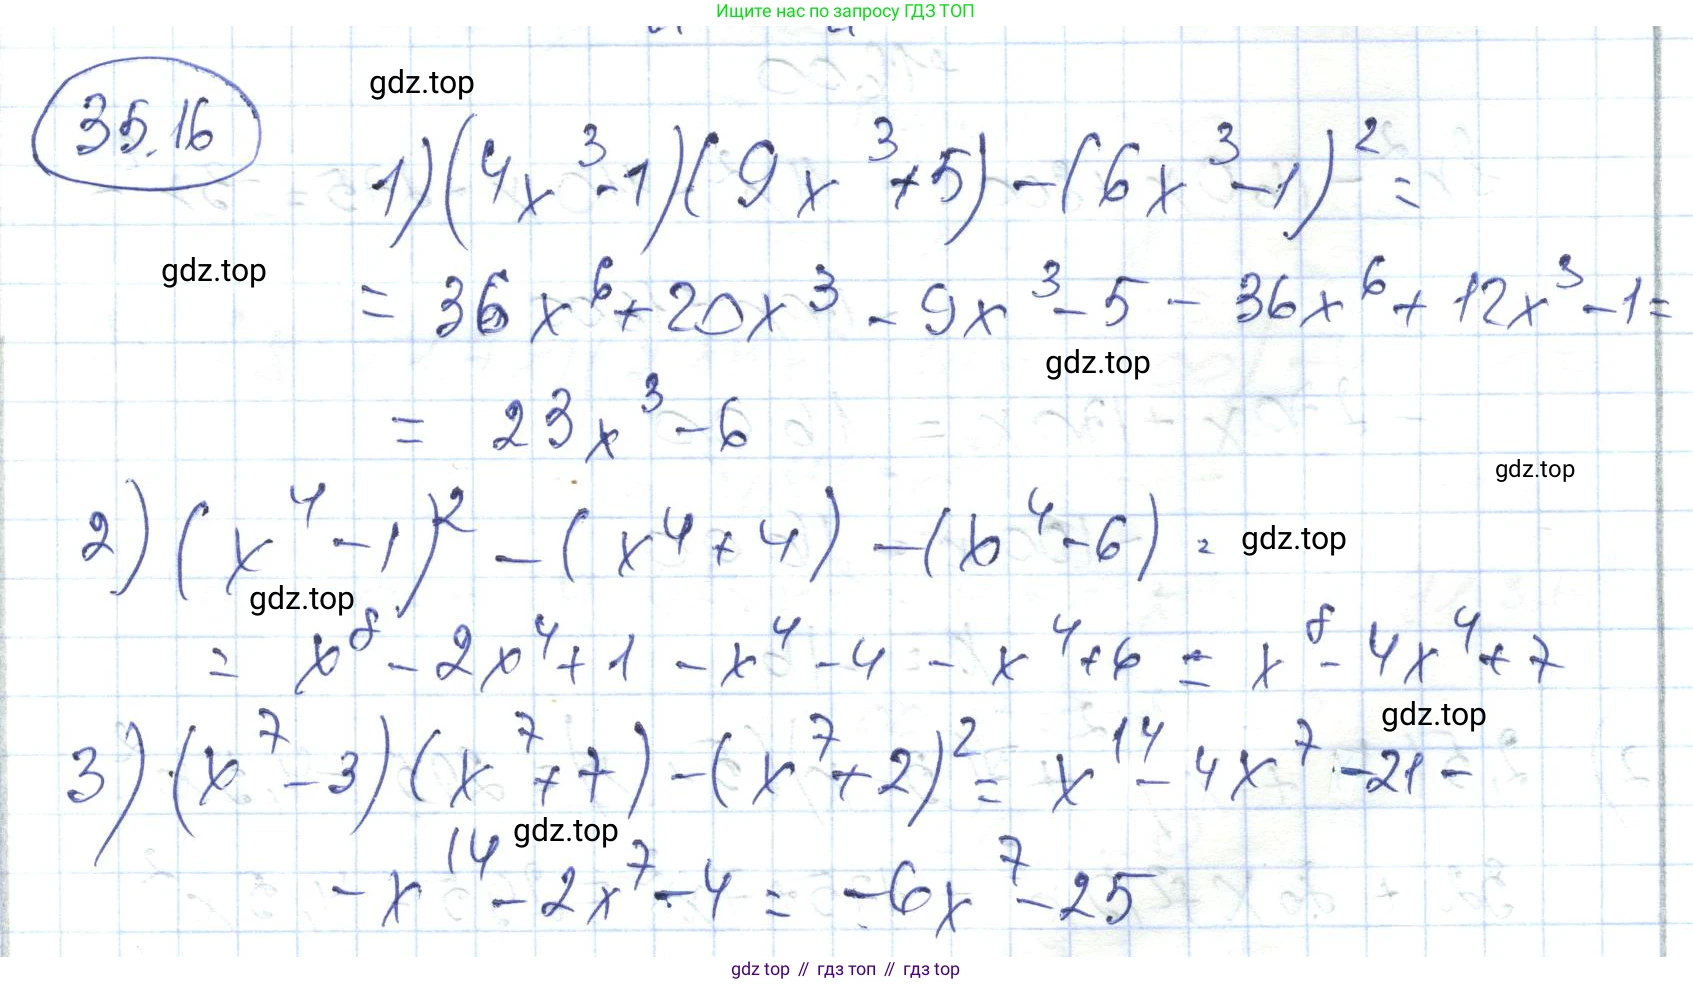 Ищите нас по запросу ГДЗ ТОП
35.16
gdz.top
1) (4x³-1)(9x³+5)-(6x³-1)²=
gdz.top
= 36x⁶+20x³-9x³-5-36x⁶+12x³-1=
gdz.top
= 23x³-6
gdz.top
2) (x⁴-1)²-(x⁴+4)-(x⁴-6)=
gdz.top
gdz.top
= x⁸-2x⁴+1-x⁴-4-x⁴+6=x⁸-4x⁴+7
gdz.top
3) (x⁷-3)(x⁷+7)-(x⁷+2)²=x¹⁴-4x⁷-21-
gdz.top
-x¹⁴-2x⁷-4=-6x⁷-25
gdz.top // гдз топ // гдз top